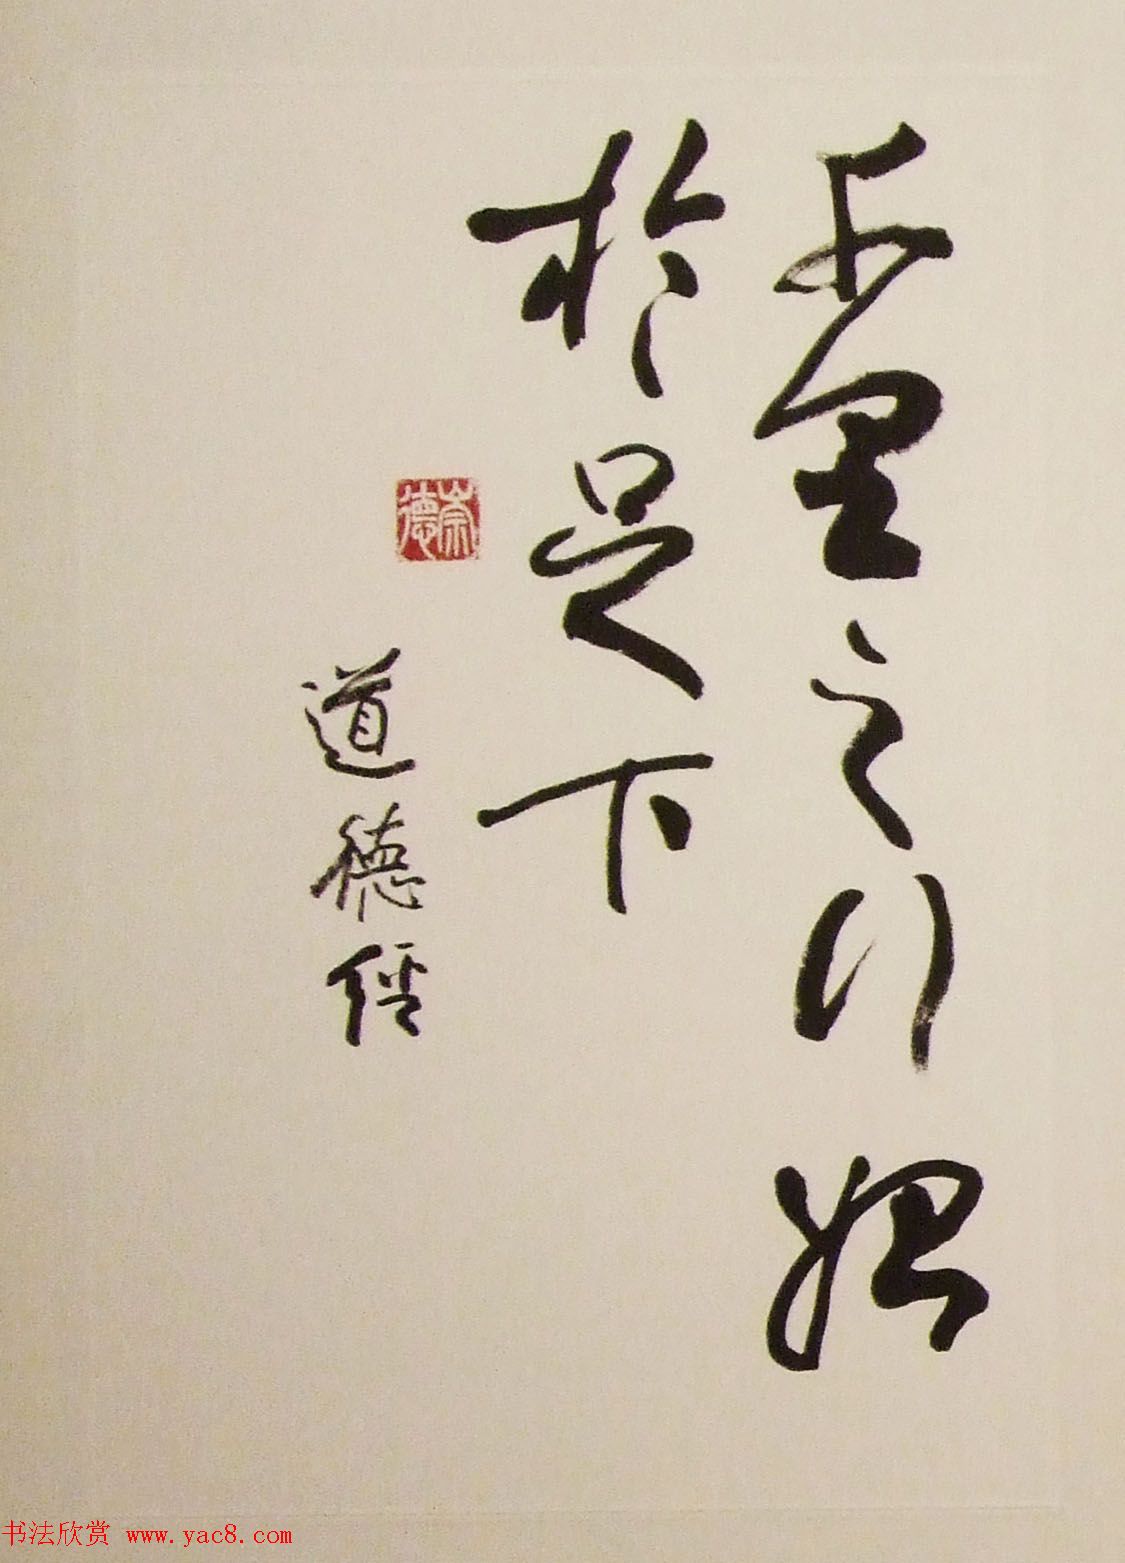 千里之行始
於足下
道德經
崇德
书法欣赏 www.yac8.com